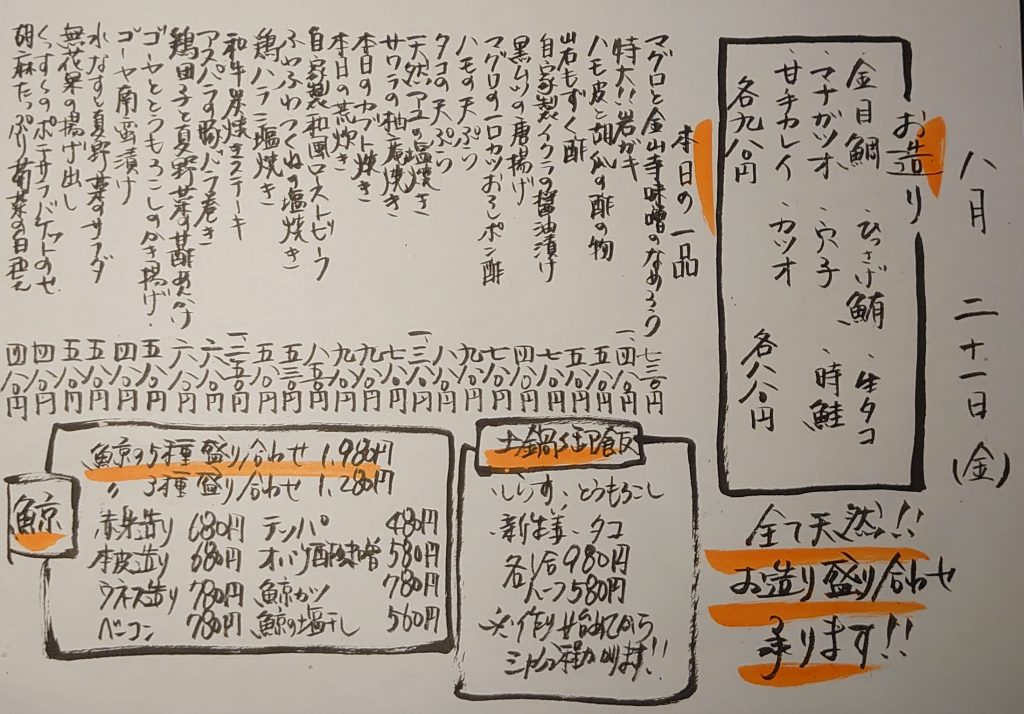 八月二十一日(金)
お造り
・金目鯛 ・ひっさげ鮪 ・生タコ
・マナガツオ ・穴子 ・時鮭
・甘手カレイ ・カツオ
各九八〇円 各八八〇円
全て天然!!
お造り盛り合わせ
承ります!!
本日の一品
マグロと金山寺味噌のなめろう 七三〇円
特大!!岩ガキ 一、四八〇円
ハモ皮と胡瓜の酢の物 五八〇円
岩もずく酢 五八〇円
自家製イクラの醤油漬け 七八〇円
黒ムツの唐揚げ 四八〇円
マグロの一口カツおろしポン酢 七八〇円
ハモの天ぷら 九八〇円
タコの天ぷら 八八〇円
天然アユの塩焼き 一、三八〇円
サワラの柚庵焼き 七八〇円
本日のカブト焼き 九八〇円
本日の荒炊き 九八〇円
自家製和風ローストビーフ 八五〇円
ふわふわつくねの塩焼き 五三〇円
鶏ハラミ塩焼き 五八〇円
和牛炭焼きステーキ 一、二五〇円
アスパラの豚バラ巻き 六八〇円
鶏団子と夏野菜の甘酢あんかけ 六八〇円
ゴーヤととうもろこしのかき揚げ 五八〇円
ゴーヤ南蛮漬け 四八〇円
水なすと夏野菜のサラダ 五八〇円
無花果の揚げ出し 五八〇円
ポテサラバゲットのせ 四八〇円
胡麻たっぷり菊菜の白和え 四八〇円
土鍋御飯
・しらす・とうもろこし
・新生姜・タコ
各1合980円
ハーフ580円
※作り始めてから
三十分程かかります!!
鯨
鯨の5種盛り合わせ 1,980円
〃 3種盛り合わせ 1,280円
赤身造り 680円 テッパ 480円
本皮造り 680円 オバケ酢味噌 580円
ウネス造り 780円 鯨カツ 780円
ベーコン 780円 鯨の塩干し 560円